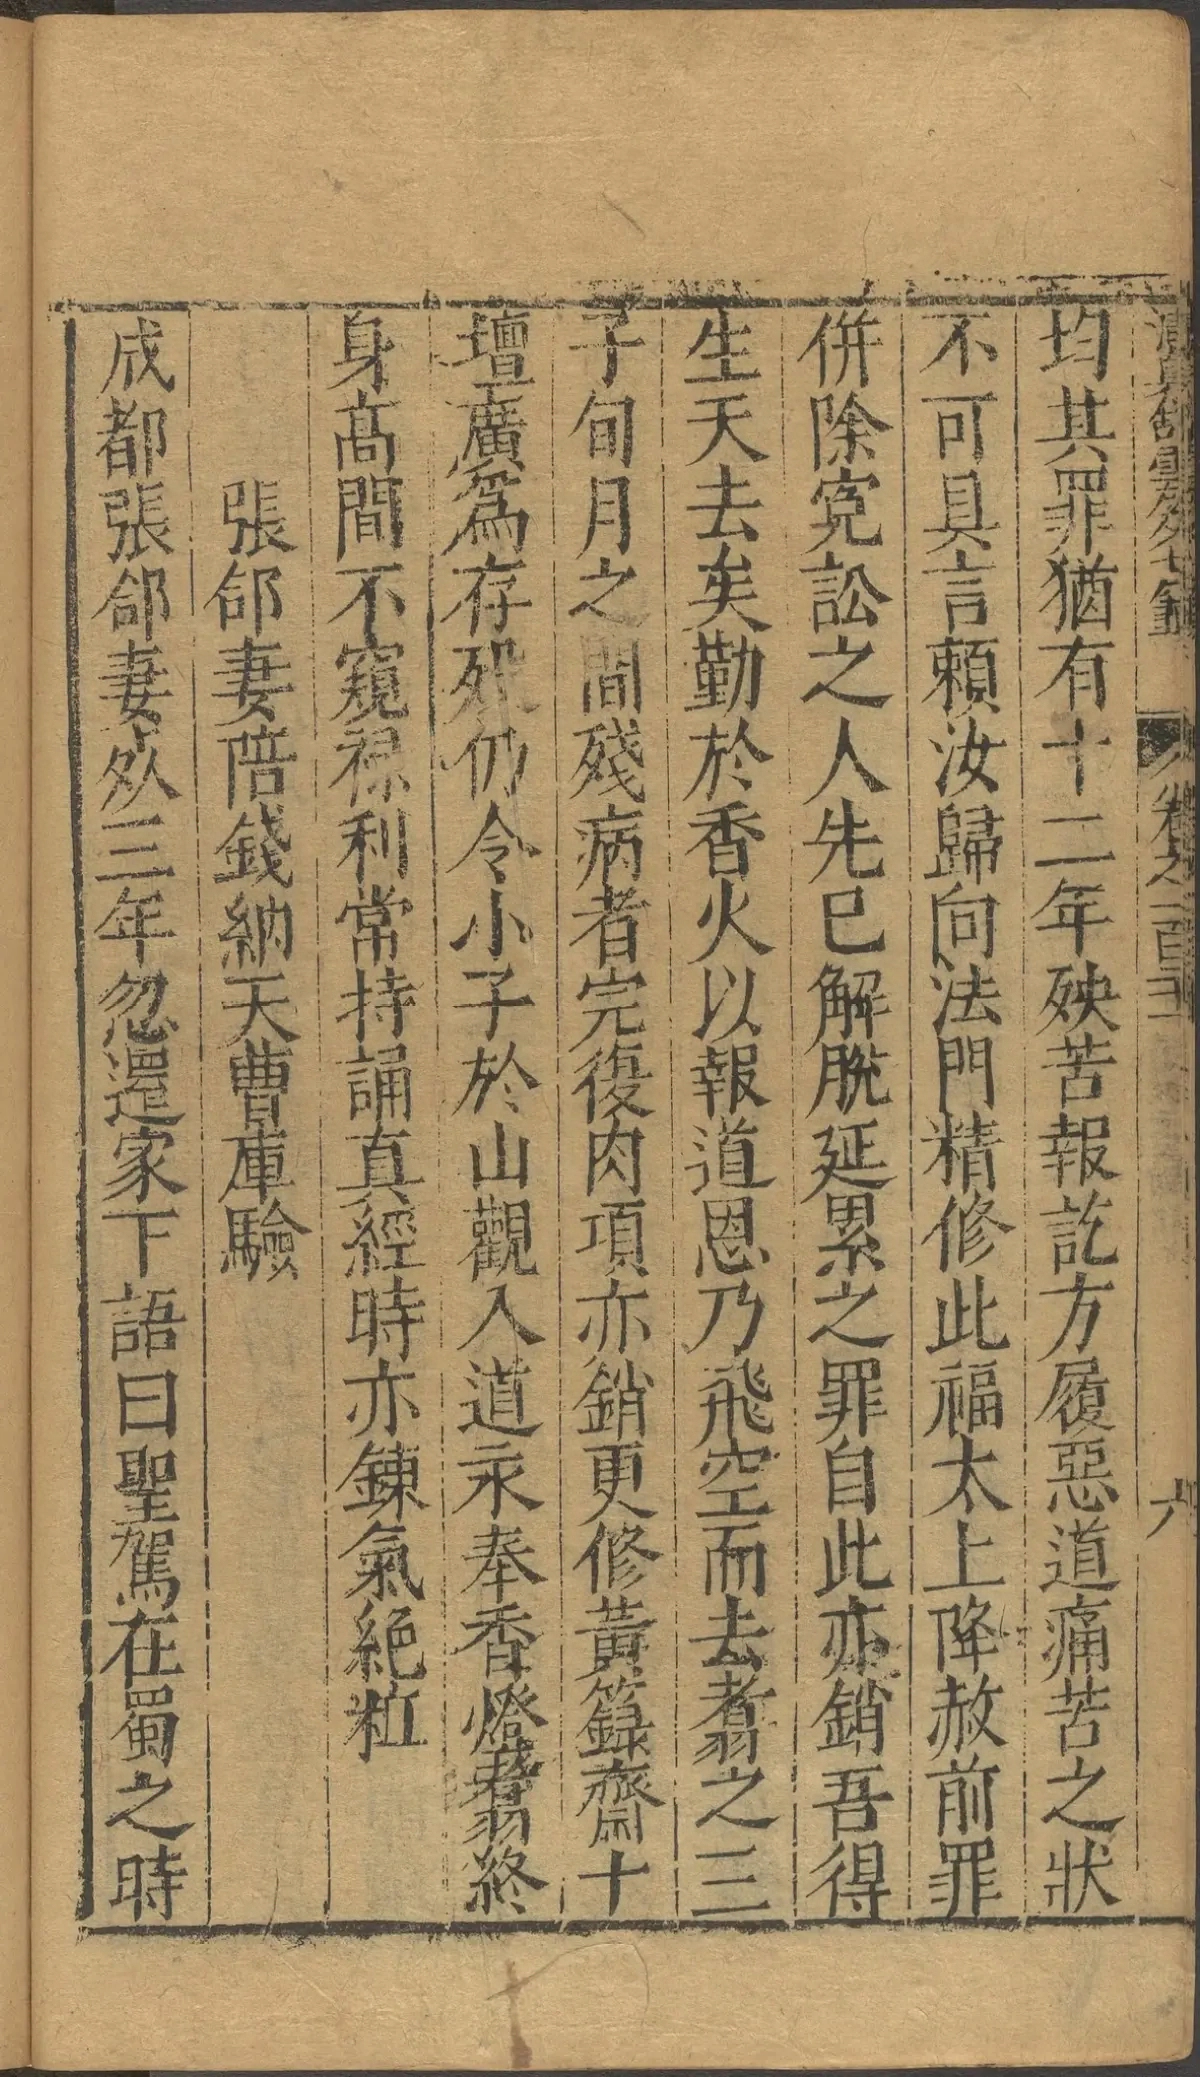 卷之一百二十 六
均其罪猶有十二年殃苦報訖方履惡道痛苦之狀
不可具言賴汝歸向法門精修此福太上降赦前罪
併除寃訟之人先巳解脫延累之罪自此亦銷吾得
生天去矣勤於香火以報道恩乃飛空而去翥之三
子旬月之間殘病者完復肉項亦銷更修黃籙齋十
壇廣爲存殁仍令小子於山觀入道永奉香燈翥終
身髙閒不窺祿利常持誦真經時亦鍊氣絶粒
張郃妻陪錢納天曹庫驗
成都張郃妻死三年忽還家下語曰聖駕在蜀之時